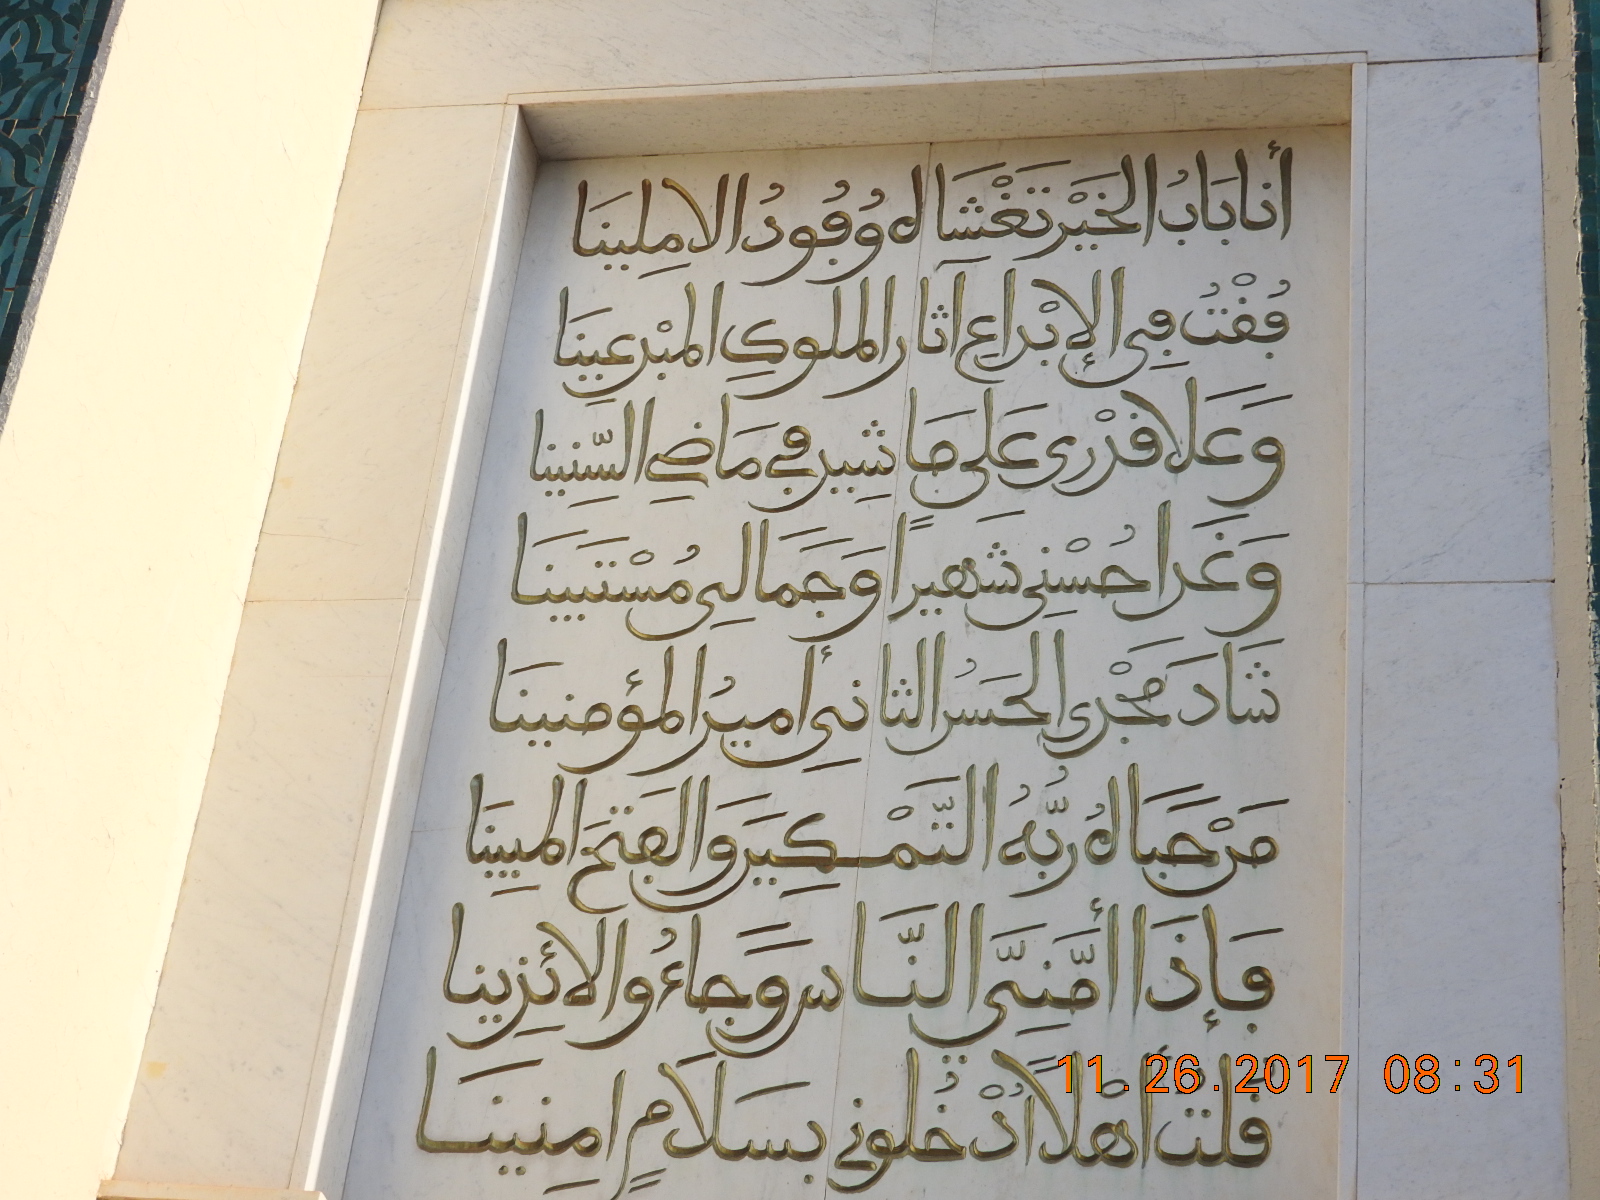 أنا بَابُ الخَيْرِ تَغْشَاهُ وُفُودُ الامِلينَا
فُقْتُ فِي الإِبْداعِ آثارَ الملوكِ المبْدِعِينَا
وَعَلَا قدْرِى عَلَى مَا شِيدَ فِي مَاضِي السِّنِينا
وَغَدا حُسْنِى شَهيراً وَجَمَالِى مُسْتَبينَا
شَادَ مَجْدِى الحَسَنُ الثانِى أميرُ المؤمنينَا
مَنْ حَبَاهُ رَبُّهُ التَّمْكِينَ وَالفَتحَ المبِينَا
فَإِذَا أَمَّنِىَ النَّاسُ وَجَاءُوا لائِذِينا
قلت أهْلاً ادْخُلُونِى بسَلَامٍ امِنينَا
11.26.2017 08:31